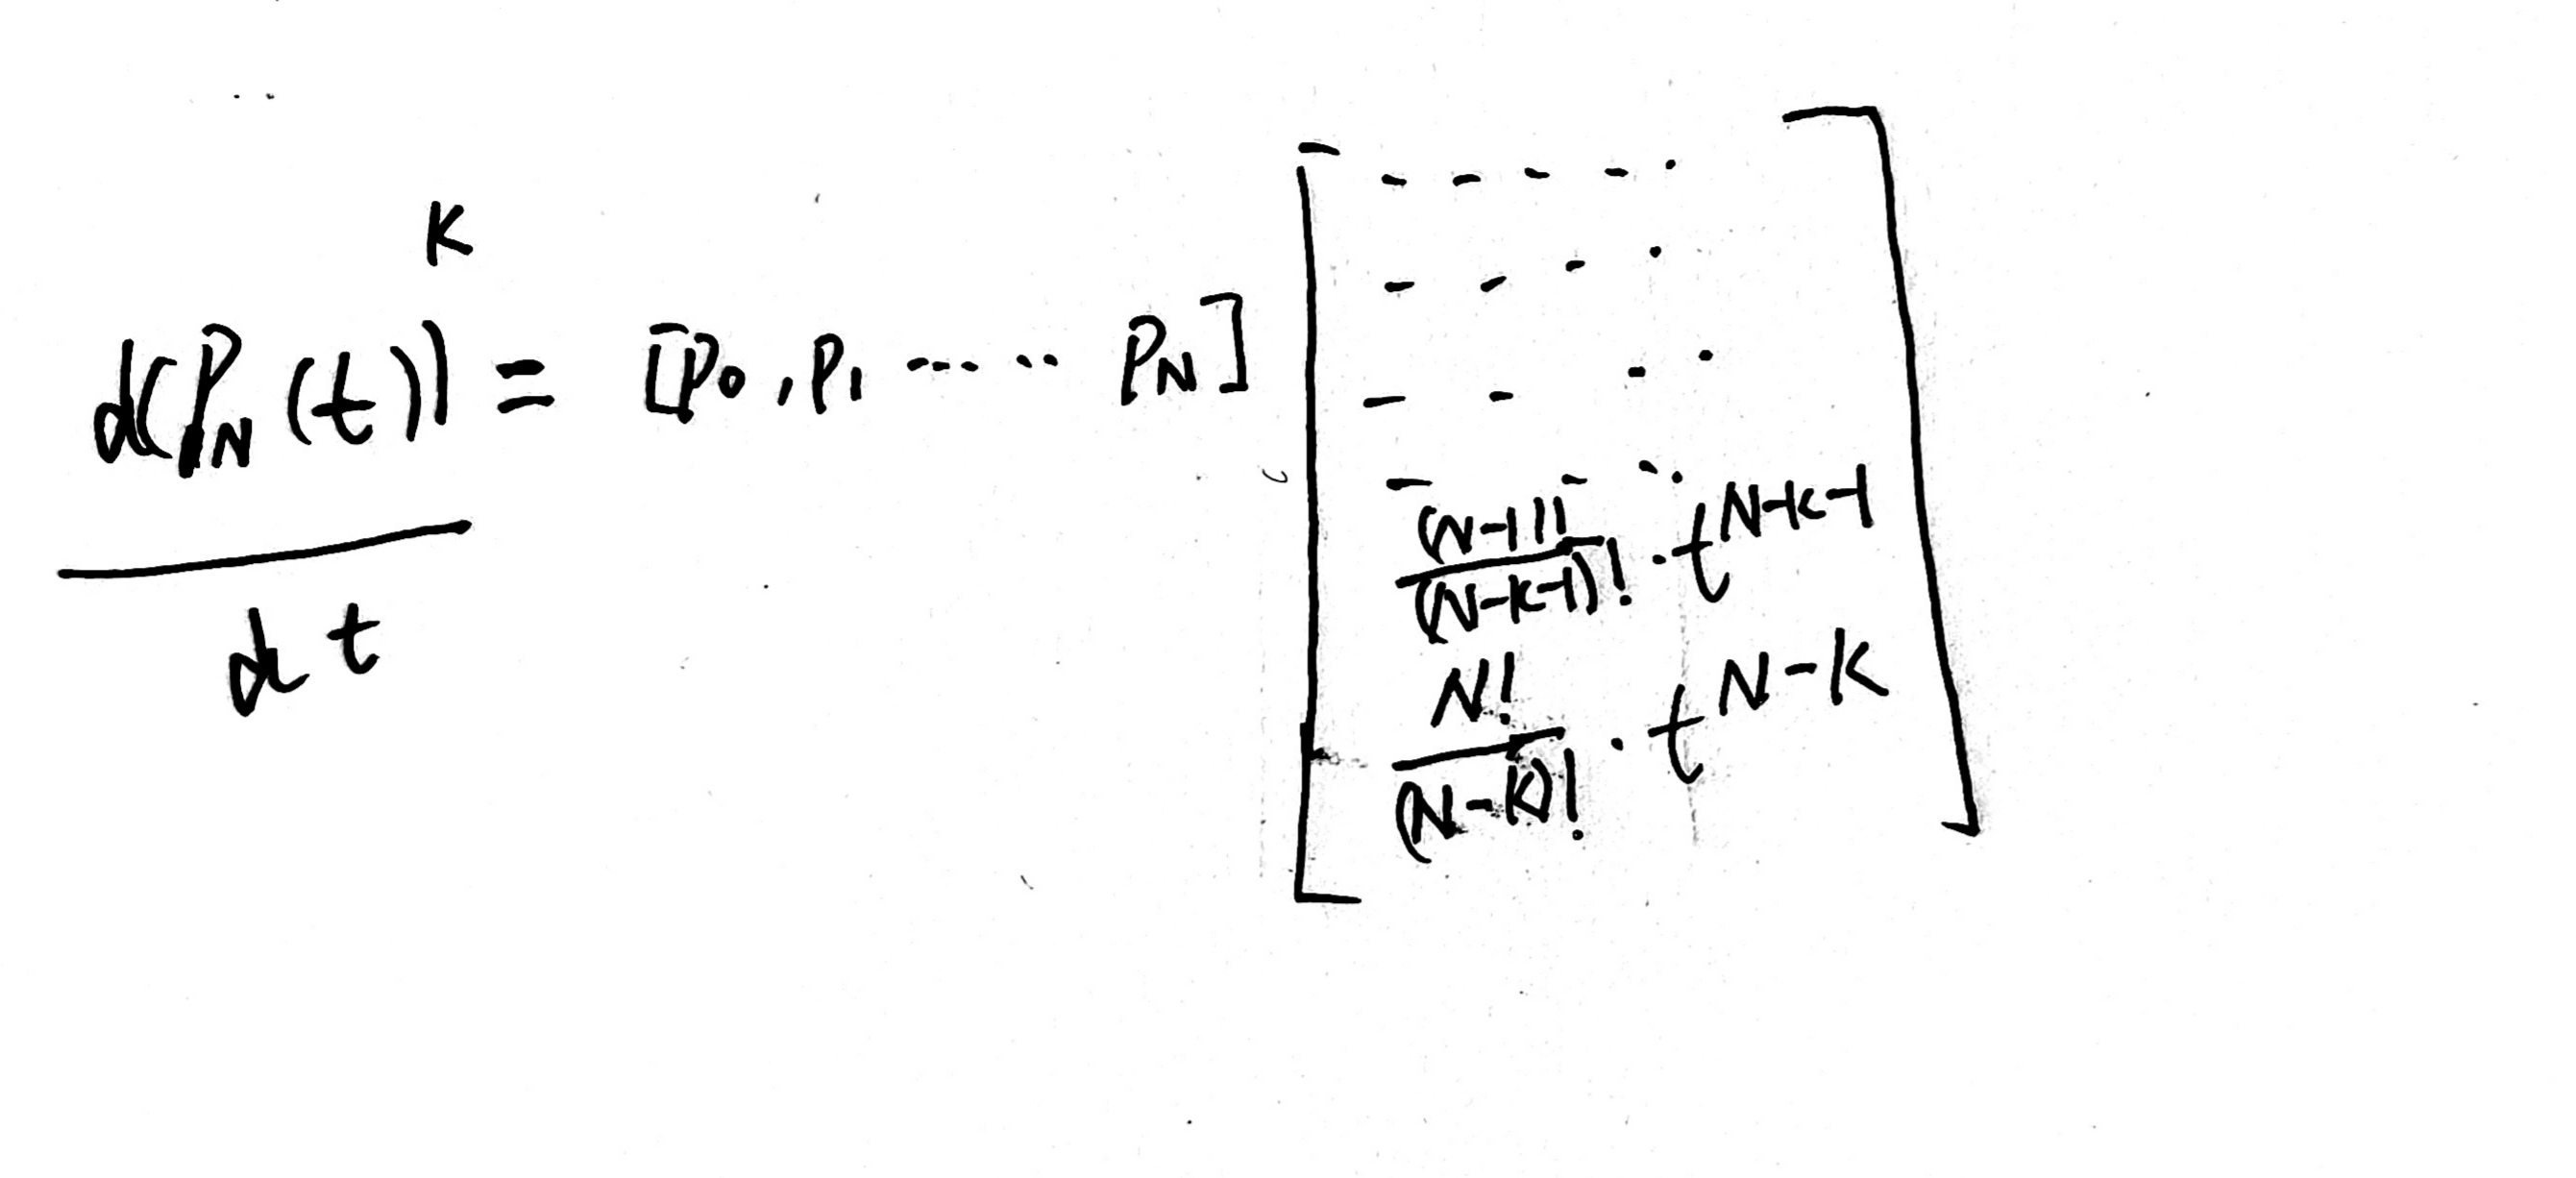 d(P_N(t))^K = [p_0, p_1 ..... p_N] [ - - - - .
- - - .
- - . .
- - ..
(N-1)! / (N-K-1)! · t^{N-K-1}
N! / (N-K)! · t^{N-K} ]
dt